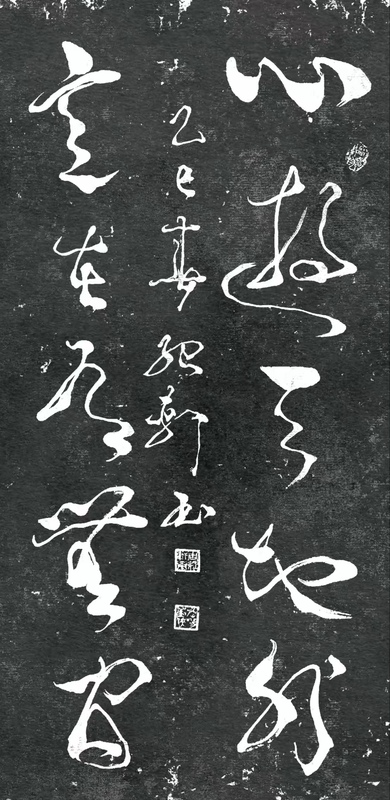 心遊天地外
意在有無間
乙巳春